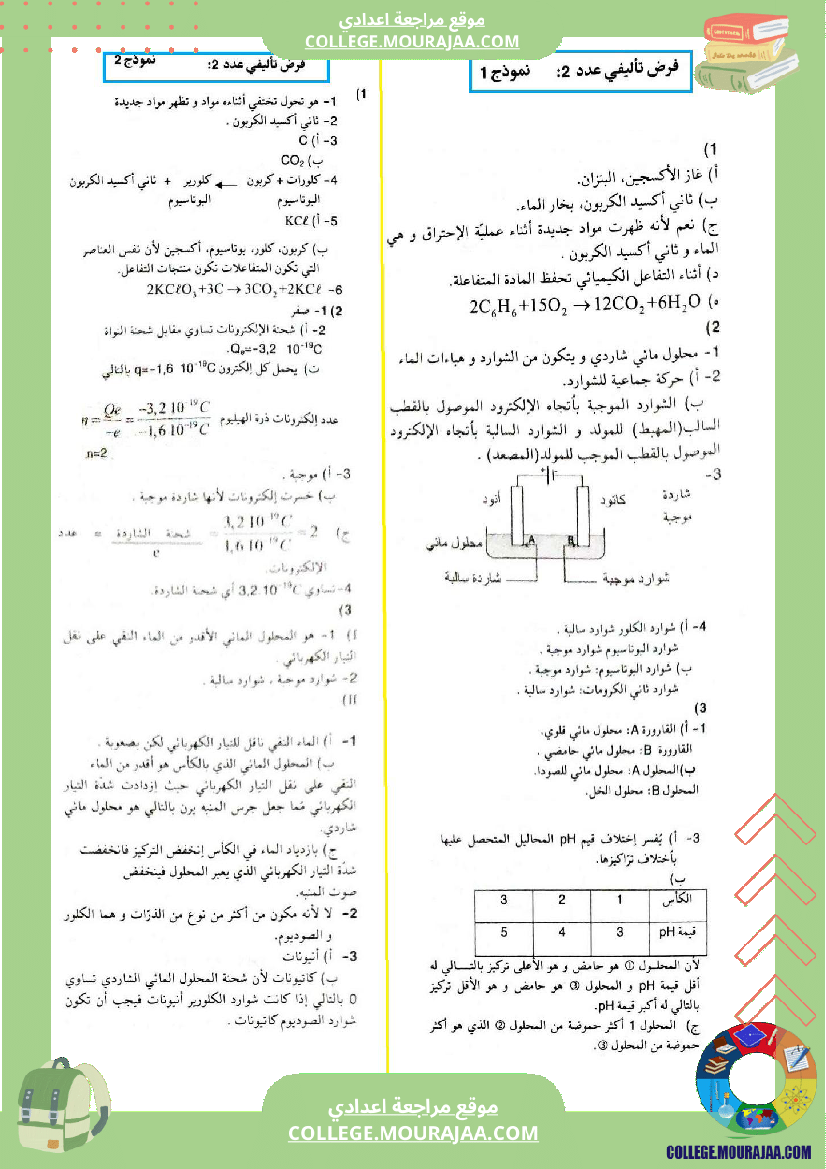 موقع مراجعة اعدادي
COLLEGE.MOURAJAA.COM
فرض تأليفي عدد 2: نموذج 1
1)
أ) غاز الأكسجين، البنزان.
ب) ثاني أكسيد الكربون، بخار الماء.
ج) نعم لأنه ظهرت مواد جديدة أثناء عمليّة الإحتراق و هي
الماء و ثاني أكسيد الكربون .
د) أثناء التفاعل الكيميائي تحفظ المادة المتفاعلة.
ه) 2C₆H₆+15O₂ → 12CO₂+6H₂O
2)
1- محلول مائي شاردي و يتكون من الشوارد و هباءات الماء
2- أ) حركة جماعية للشوارد.
ب) الشوارد الموجبة بأتجاه الإلكترود الموصول بالقطب
السالب(المهبط) للمولد و الشوارد السالبة بأتجاه الإلكترود
الموصول بالقطب الموجب للمولد(المصعد) .
3-
+ -
أنود كاتود شاردة
موجبة
A B
محلول مائي
شاردة سالبة شوارد موجبة
4- أ) شوارد الكلور شوارد سالبة .
شوارد البوتاسيوم شوارد موجبة .
ب) شوارد البوتاسيوم: شوارد موجبة .
شوارد ثاني الكرومات: شوارد سالبة .
3)
1- أ) القارورة A: محلول مائي قلوي.
القارورة B: محلول مائي حامضي .
ب)المحلول A: محلول مائي للصودا.
المحلول B: محلول الخل.
3- أ) يُفسر إختلاف قيم pH المحاليل المتحصل عليها
بأختلاف تراكيزها.
ب)
الكأس 1 2 3
قيمة pH 3 4 5
لأن المحلول ① هو حامض و هو الأعلى تركيز بالتالي له
أقل قيمة pH و المحلول ③ هو حامض و هو الأقل تركيز
بالتالي له أكبر قيمة pH.
ج) المحلول 1 أكثر حموضة من المحلول ② الذي هو أكثر
حموضة من المحلول ③.
فرض تأليفي عدد 2: نموذج 2
1)
1- هو تحول تختفي أثناءه مواد و تظهر مواد جديدة
2- ثاني أكسيد الكربون .
3- أ) C
ب) CO₂
4- كلورات + كربون ← كلورير + ثاني أكسيد الكربون
البوتاسيوم البوتاسيوم
5- أ) KCℓ
ب) كربون، كلور، بوتاسيوم، أكسجين لأن نفس العناصر
التي تكون المتفاعلات تكون منتجات التفاعل.
6- 2KCℓO₃+3C → 3CO₂+2KCℓ
2) 1- صفر
2- أ) شحنة الإلكترونات تساوي مقابل شحنة النواة
Qₑ=-3,2 10⁻¹⁹C.
ت) يحمل كل إلكترون q=-1,6 10⁻¹⁹C بالتالي
عدد إلكترونات ذرة الهيليوم n = Qe/-e = -3,2 10⁻¹⁹C/-1,6 10⁻¹⁹C
n=2
3- أ) موجبة .
ب) خسرت إلكترونات لأنها شاردة موجبة .
ج) عدد = شحنة الشاردة/e = 3,2 10⁻¹⁹C/1,6 10⁻¹⁹C = 2
الإلكترونات.
4- تساوي 3,2.10⁻¹⁹C أي شحنة الشاردة.
3)
I) 1- هو المحلول المائي الأقدر من الماء النقي على نقل
التيار الكهربائي .
2- شوارد موجبة ، شوارد سالبة .
II)
1- أ) الماء النقي ناقل للتيار الكهربائي لكن بصعوبة .
ب) المحلول المائي الذي بالكأس هو أقدر من الماء
النقي على نقل التيار الكهربائي حيث إزدادت شدّة التيار
الكهربائي مُما جعل جرس المنبه يرن بالتالي هو محلول مائي
شاردي.
ج) بازدياد الماء في الكأس إنخفض التركيز فانخفضت
شدّة التيار الكهربائي الذي يعبر المحلول فينخفض
صوت المنبه.
2- لا لأنه مكون من أكثر من نوع من الذرّات و هما الكلور
و الصوديوم.
3- أ) أنيونات
ب) كاتيونات لأن شحنة المحلول المائي الشاردي تساوي
0 بالتالي إذا كانت شوارد الكلورير أنيونات فيجب أن تكون
شوارد الصوديوم كاتيونات .
موقع مراجعة اعدادي
COLLEGE.MOURAJAA.COM
COLLEGE.MOURAJAA.COM